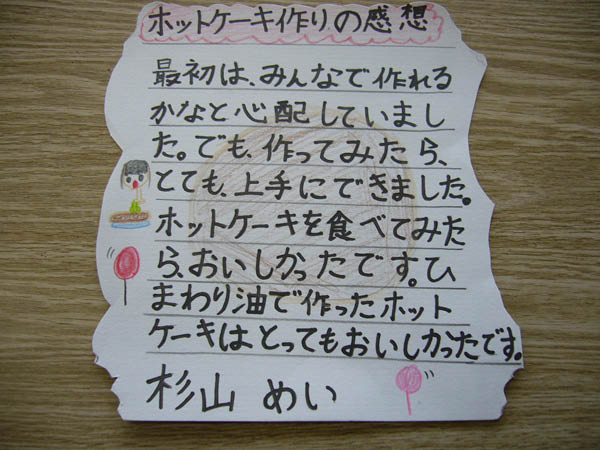 ホットケーキ作りの感想
最初は、みんなで作れる
かなと心配していまし
た。でも、作ってみたら、
とても、上手にできました。
ホットケーキを食べてみた
ら、おいしかったです。ひ
まわり油で作ったホット
ケーキはとってもおいしかったです。
杉山 めい